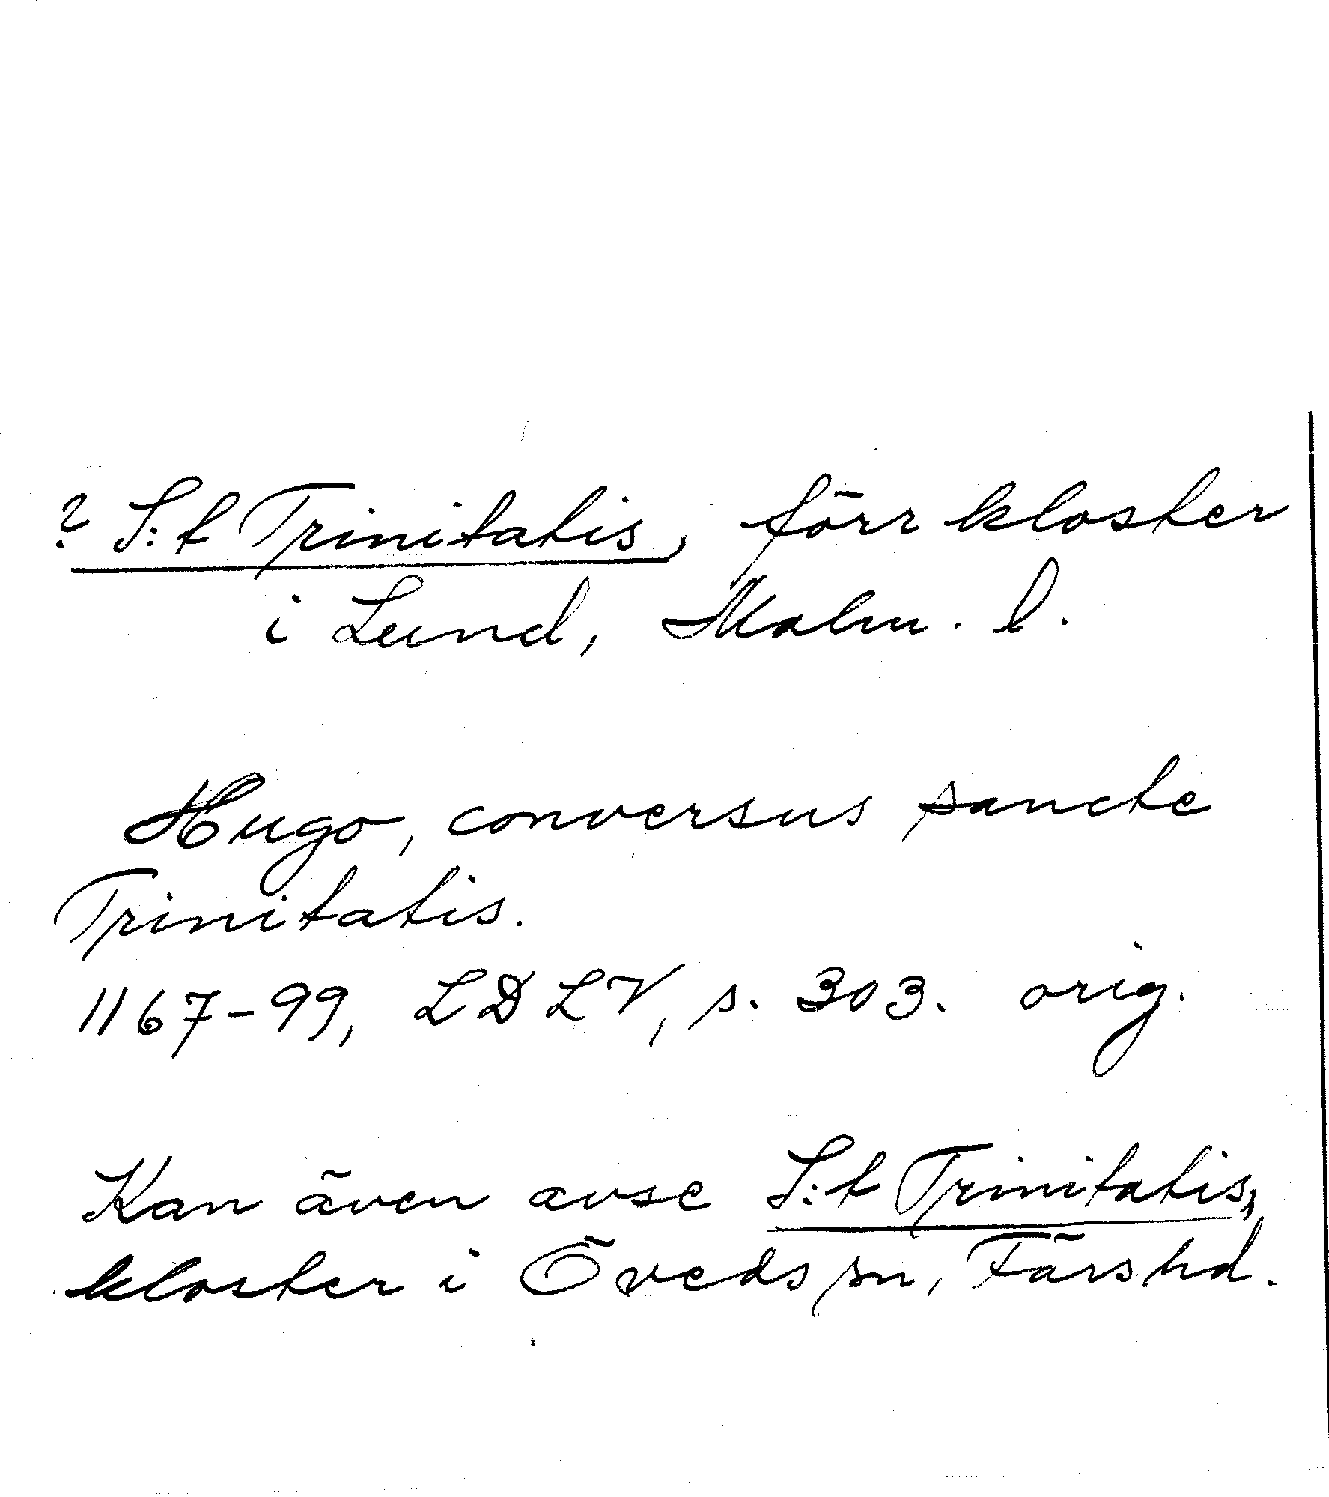 ? S:t Trinitatis, förr kloster
i Lund, Malm. l.
Hugo, conversus sancte
Trinitatis.
1167-99, LDLV, s. 303. orig.
Kan även avse S:t Trinitatis,
kloster i Öveds sn, Färs hd.